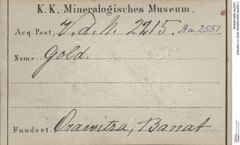 K. K. Mineralogisches Museum.
Acq. Post. V. d. N. 2215. A.a. 2551
Name: Gold.
Fundort: Orawitza, Banat